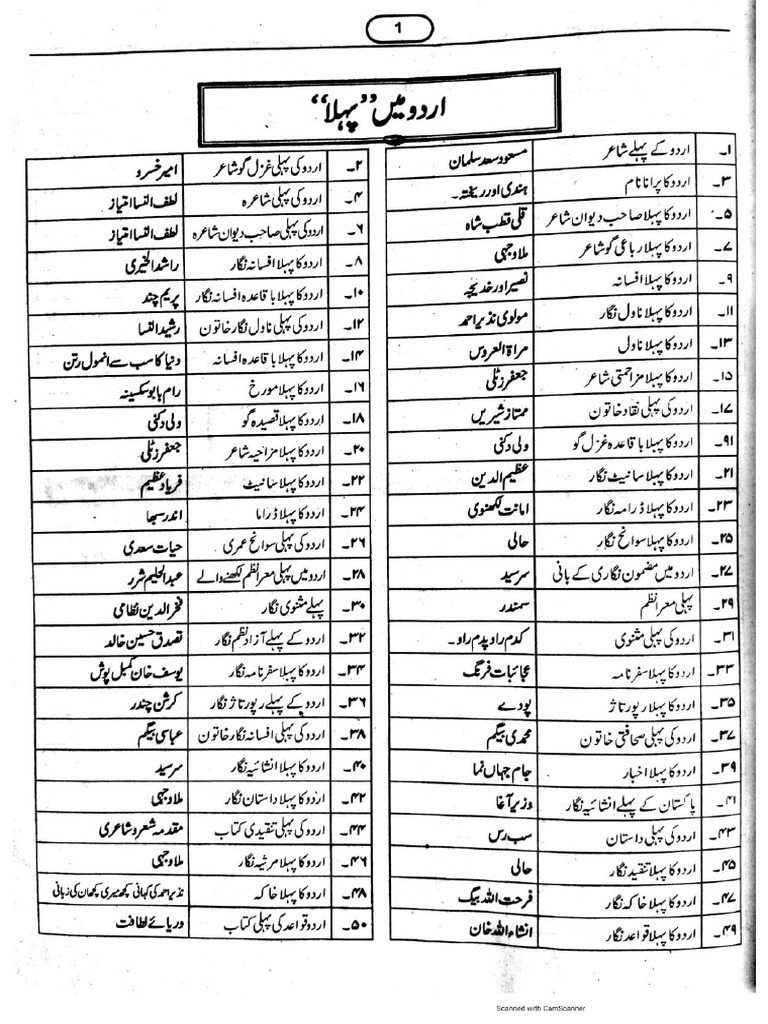 1
اردو میں ”پہلا“
۱۔ اردو کے پہلے شاعر مسعود سعد سلمان
۲۔ اردو کی پہلی غزل گو شاعر امیر خسرو
۳۔ اردو کا پرانا نام ہندی اور ریختہ۔
۴۔ اردو کی پہلی شاعرہ لطف النسا امتیاز
۵۔ اردو کا پہلا صاحب دیوان شاعر قلی قطب شاہ
۶۔ اردو کی پہلی صاحب دیوان شاعرہ لطف النسا امتیاز
۷۔ اردو کا پہلا رباعی گو شاعر ملا وجہی
۸۔ اردو کا پہلا افسانہ نگار راشد الخیری
۹۔ اردو کا پہلا افسانہ نصیر اور خدیجہ
۱۰۔ اردو کا پہلا باقاعدہ افسانہ نگار پریم چند
۱۱۔ اردو کا پہلا ناول نگار مولوی نذیر احمد
۱۲۔ اردو کی پہلی ناول نگار خاتون رشید النسا
۱۳۔ اردو کا پہلا ناول مراۃ العروس
۱۴۔ اردو کا پہلا باقاعدہ افسانہ دنیا کا سب سے انمول رتن
۱۵۔ اردو کا پہلا مزاحمتی شاعر جعفر زٹلی
۱۶۔ اردو کا پہلا مورخ رام بابو سکسینہ
۱۷۔ اردو کی پہلی نقاد خاتون ممتاز شیریں
۱۸۔ اردو کا پہلا قصیدہ گو ولی دکنی
۹۱۔ اردو کا پہلا باقاعدہ غزل گو ولی دکنی
۲۰۔ اردو کا پہلا مزاحیہ شاعر جعفر زٹلی
۲۱۔ اردو کا پہلا سانیٹ نگار عظیم الدین
۲۲۔ اردو کا پہلا سانیٹ فریاد عظیم
۲۳۔ اردو کا پہلا ڈرامہ نگار امانت لکھنوی
۲۴۔ اردو کا پہلا ڈراما اندر سبھا
۲۵۔ اردو کا پہلا سوانح نگار حالی
۲۶۔ اردو کی پہلی سوانح عمری حیات سعدی
۲۷۔ اردو میں مضمون نگاری کے بانی سرسید
۲۸۔ اردو میں پہلی معرا نظم لکھنے والے عبدالحلیم شرر
۲۹۔ پہلی معرا نظم سمندر
۳۰۔ پہلے مثنوی نگار فخر الدین نظامی
۳۱۔ اردو کی پہلی مثنوی کدم راو پدم راو۔
۳۲۔ اردو کے پہلے آزاد نظم نگار تصدق حسین خالد
۳۳۔ اردو کا پہلا سفر نامہ عجائبات فرنگ
۳۴۔ اردو کا پہلا سفر نامہ نگار یوسف خان کمبل پوش
۳۵۔ اردو کا پہلا رپورتاژ پودے
۳۶۔ اردو کے پہلے رپورتاژ نگار کرشن چندر
۳۷۔ اردو کی پہلی صحافتی خاتون محمدی بیگم
۳۸۔ اردو کی پہلی افسانہ نگار خاتون عباسی بیگم
۳۹۔ اردو کا پہلا اخبار جام جہاں نما
۴۰۔ اردو کا پہلا انشائیہ نگار سرسید
۴۱۔ پاکستان کے پہلے انشائیہ نگار وزیر آغا
۴۲۔ اردو کا پہلا داستان نگار ملا وجہی
۴۳۔ اردو کی پہلی داستان سب رس
۴۴۔ اردو کی پہلی تنقیدی کتاب مقدمہ شعر و شاعری
۴۵۔ اردو کا پہلا تنقید نگار حالی
۴۶۔ اردو کا پہلا مرثیہ نگار ملا وجہی
۴۷۔ اردو کا پہلا خاکہ نگار فرحت اللہ بیگ
۴۸۔ اردو کا پہلا خاکہ نذیر احمد کی کہانی کچھ میری کچھ ان کی زبانی
۴۹۔ اردو کا پہلا قواعد نگار انشاء اللہ خان
۵۰۔ اردو قواعد کی پہلی کتاب دریائے لطافت
Scanned with CamScanner